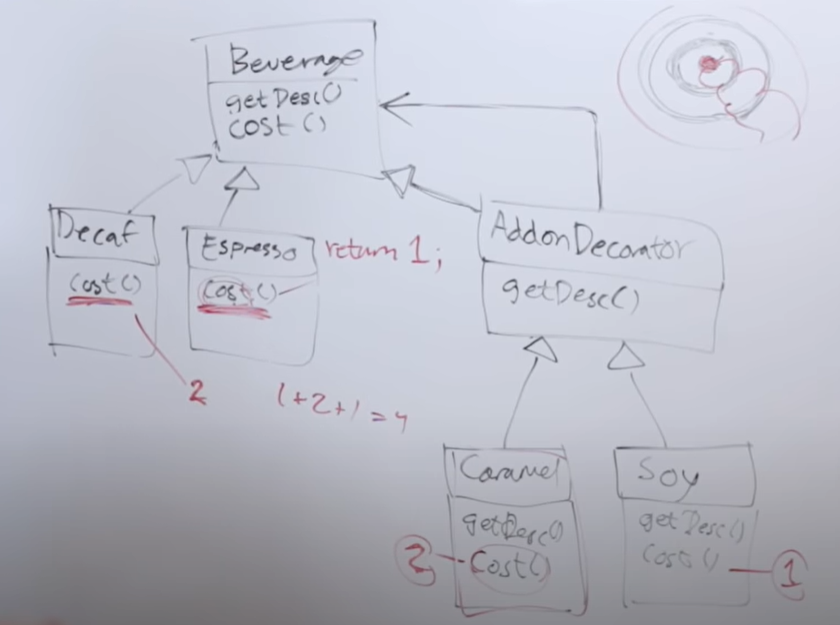 Beverage
getDesc()
cost()
Decaf
cost()
2
Espresso
cost()
return 1;
1+2+1=4
AddonDecorator
getDesc()
Caramel
getDesc()
2
Cost()
Soy
getDesc()
cost()
1